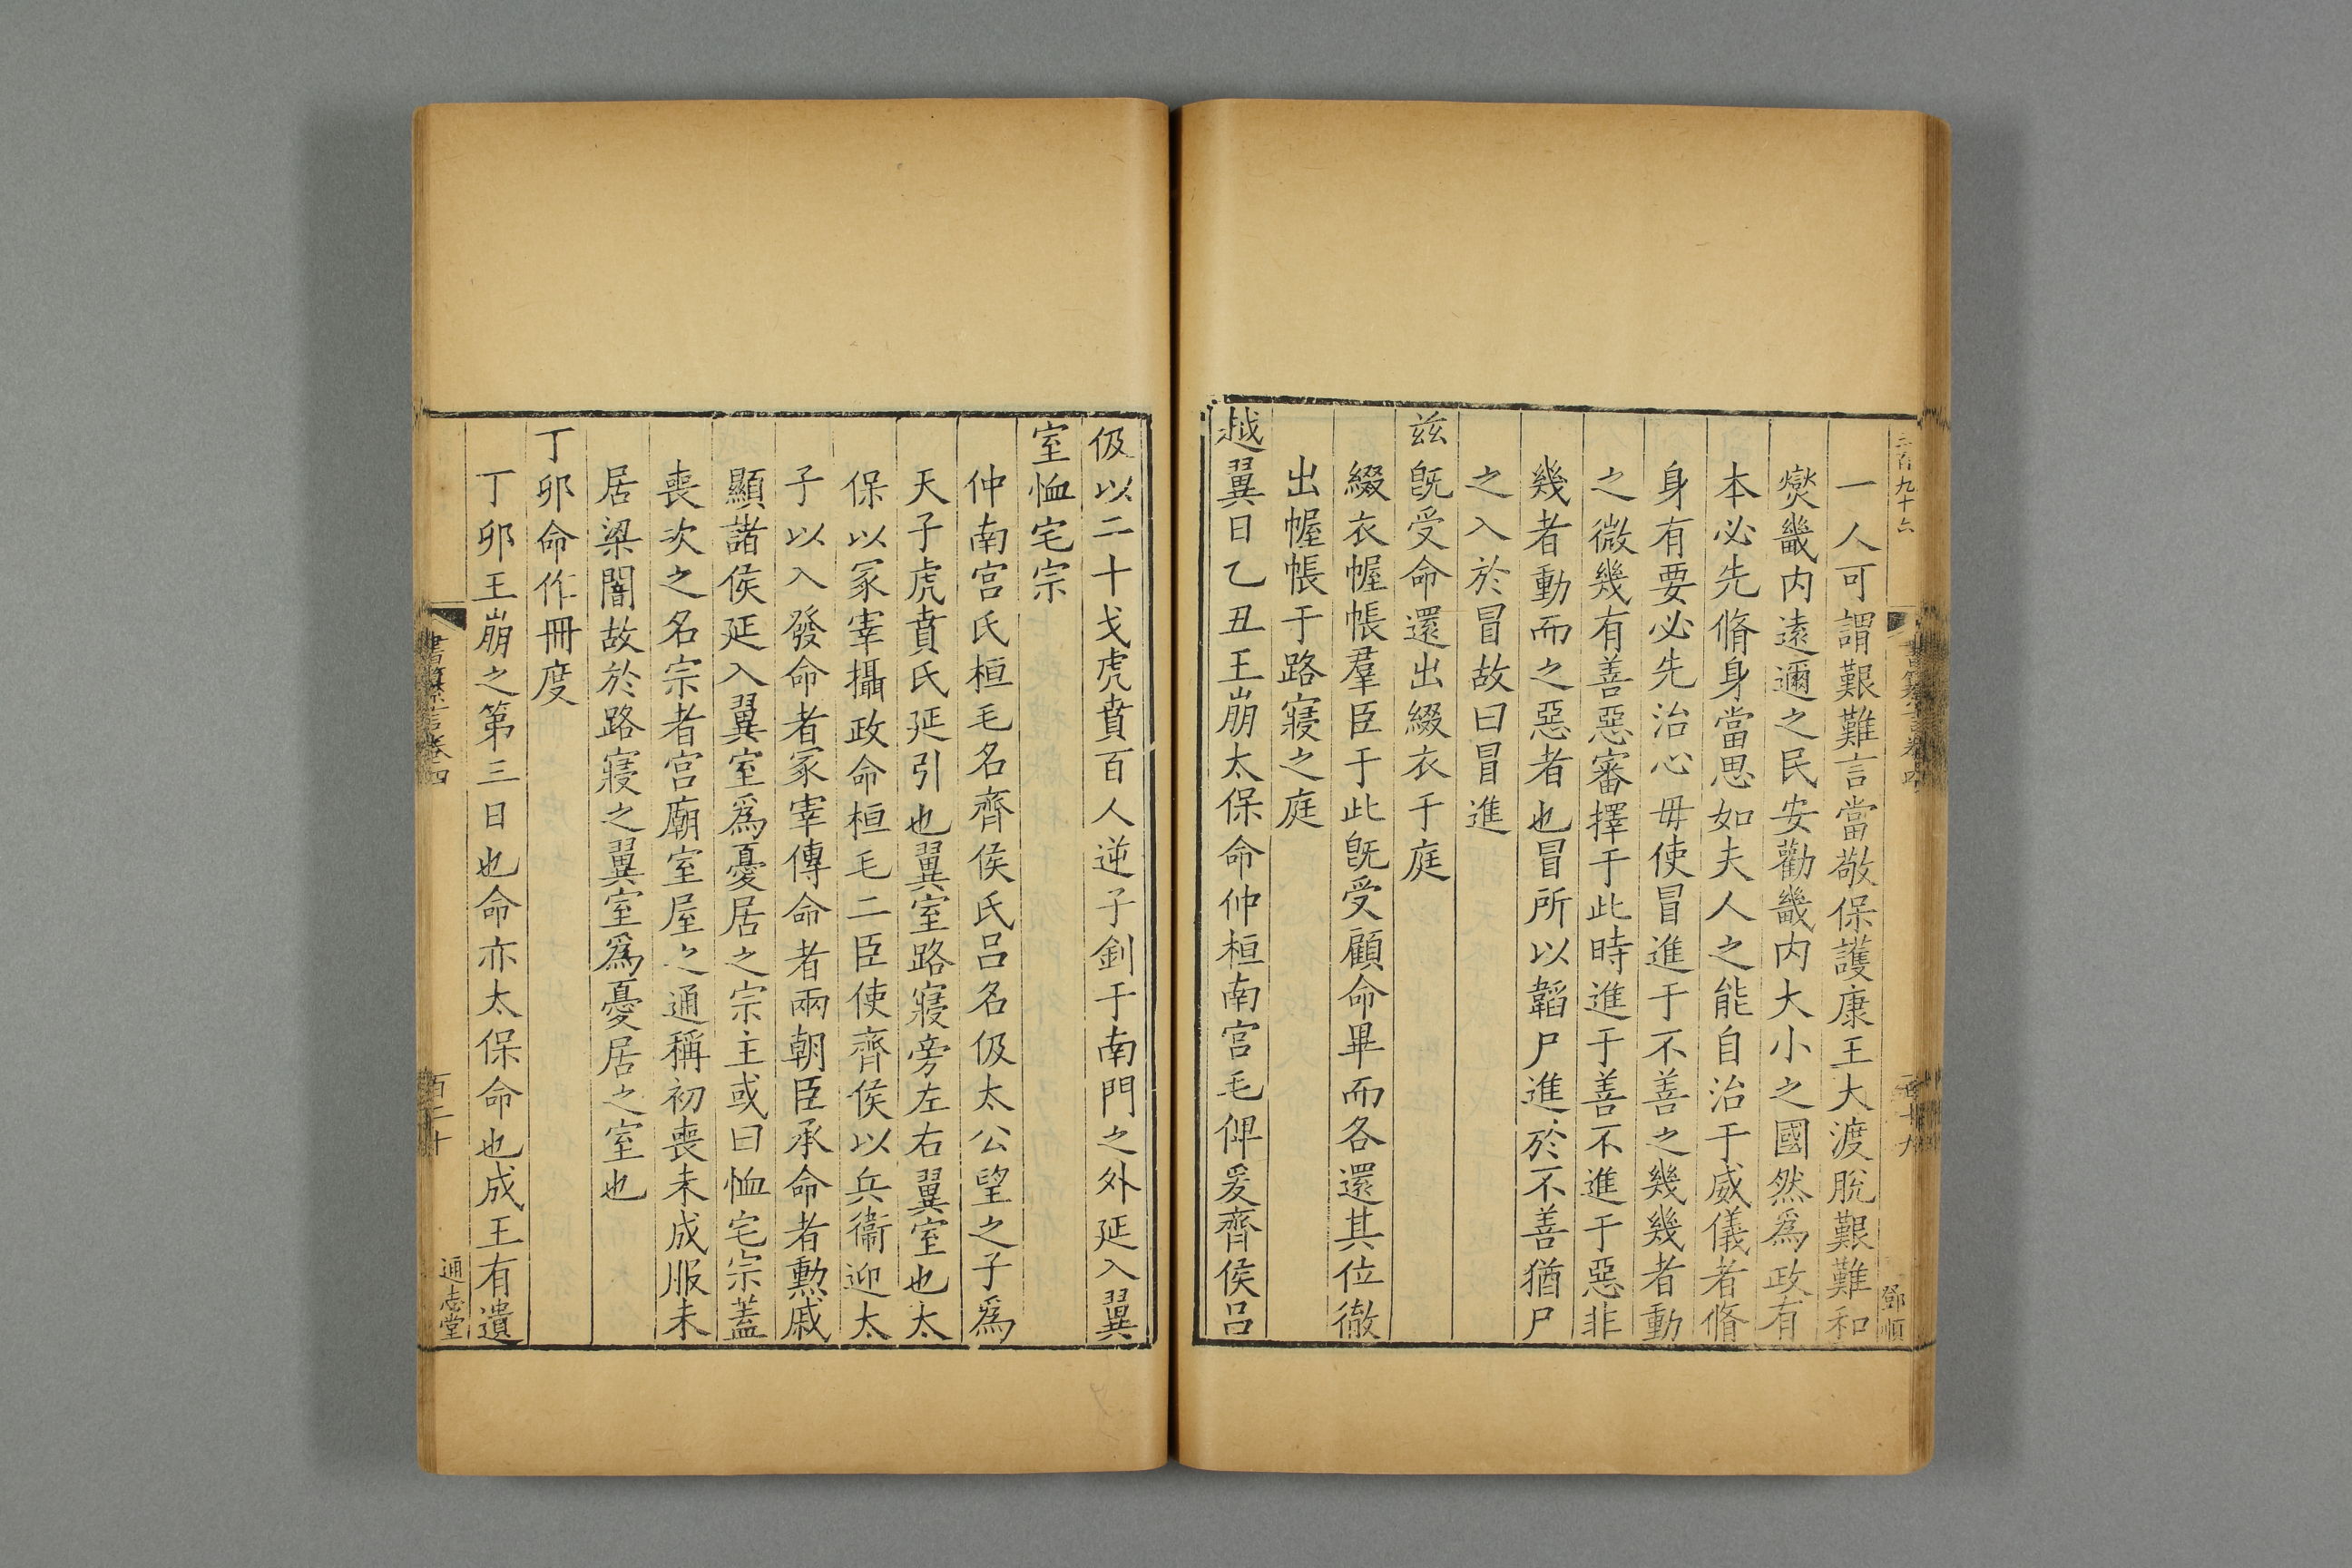 二百九十六
鄧順
一人可謂艱難言當敬保護康王大渡脫艱難和
爕畿内遠邇之民安勸畿内大小之國然為政有
本必先脩身當思如夫人之能自治于威儀者脩
身有要必先治心毋使冒進于不善之幾幾者動
之微幾有善惡審擇于此時進于善不進于惡非
幾者動而之惡者也冒所以韜尸進於不善猶尸
之入於冒故曰冒進
兹旣受命還出綴衣于庭
綴衣幄帳羣臣于此旣受顧命畢而各還其位徹
出幄帳于路寢之庭
越翼日乙丑王崩太保命仲桓南宮毛俾爰齊侯呂
伋以二十戈虎賁百人逆子釗于南門之外延入翼
室恤宅宗
仲南宮氏桓毛名齊侯氏呂名伋太公望之子爲
天子虎賁氏延引也翼室路寢旁左右翼室也太
保以冢宰攝政命桓毛二臣使齊侯以兵衞迎太
子以入發命者冢宰傳命者兩朝臣承命者勲戚
顯諸侯延入翼室爲憂居之宗主或曰恤宅宗蓋
喪次之名宗者宮廟室屋之通稱初喪未成服未
居梁闇故於路寢之翼室爲憂居之室也
丁卯命作冊度
丁卯王崩之第三日也命亦太保命也成王有遺
書纂言卷四
百二十
通志堂